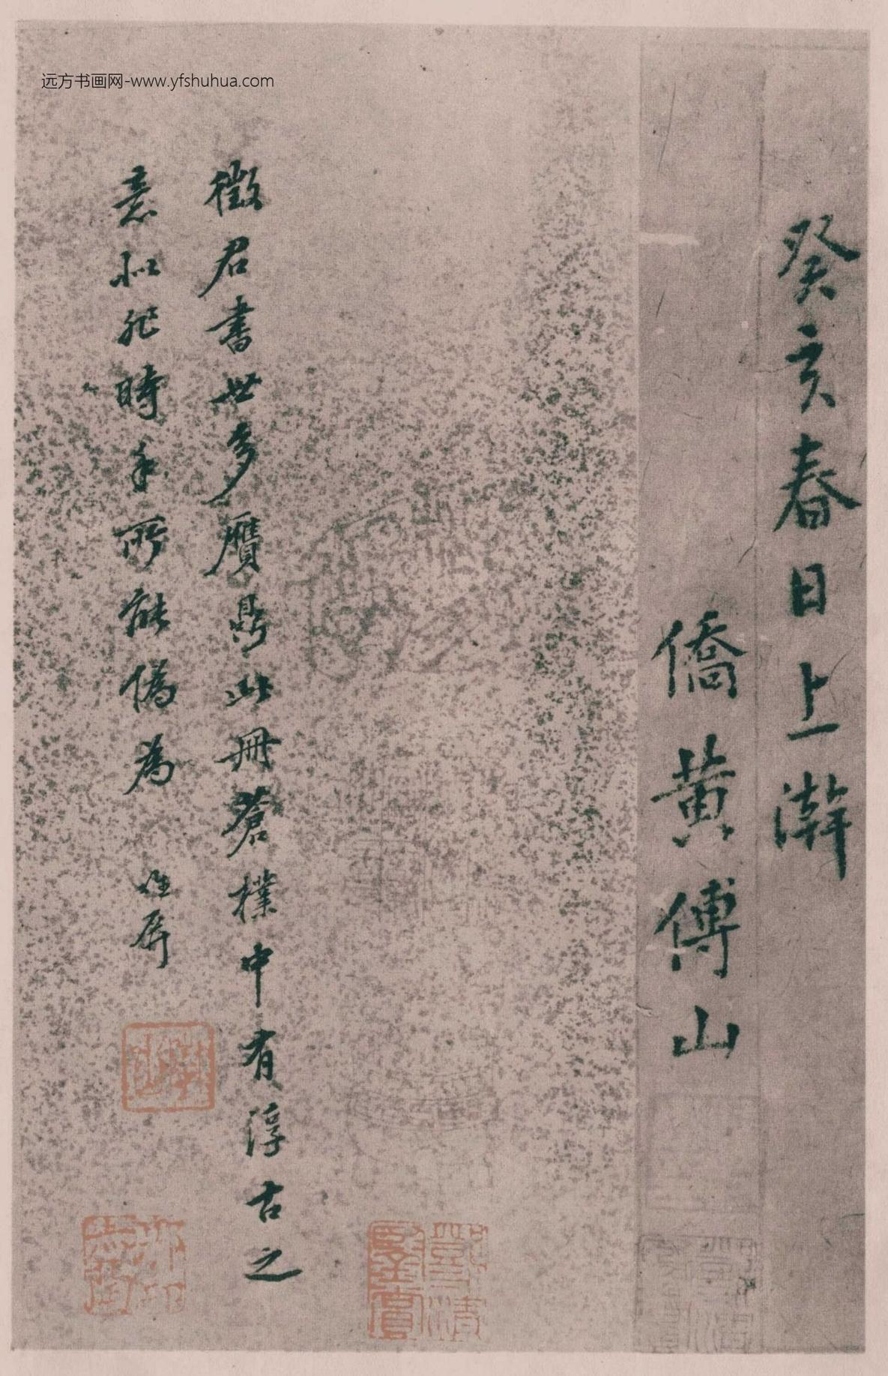 远方书画网-www.yfshuhua.com
癸亥春日上澣
僑黄傅山
徵君書世多贗鼎此册蒼樸中有淳古之
意似非時手所能僞為